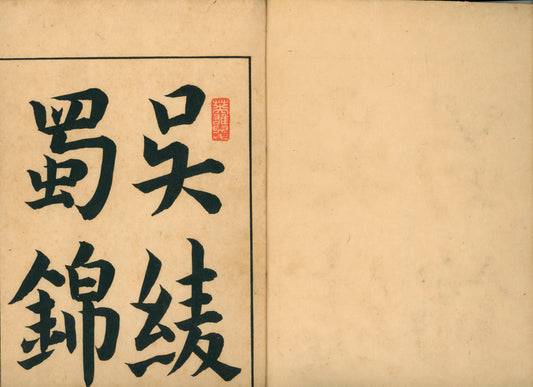 吳綾
蜀錦